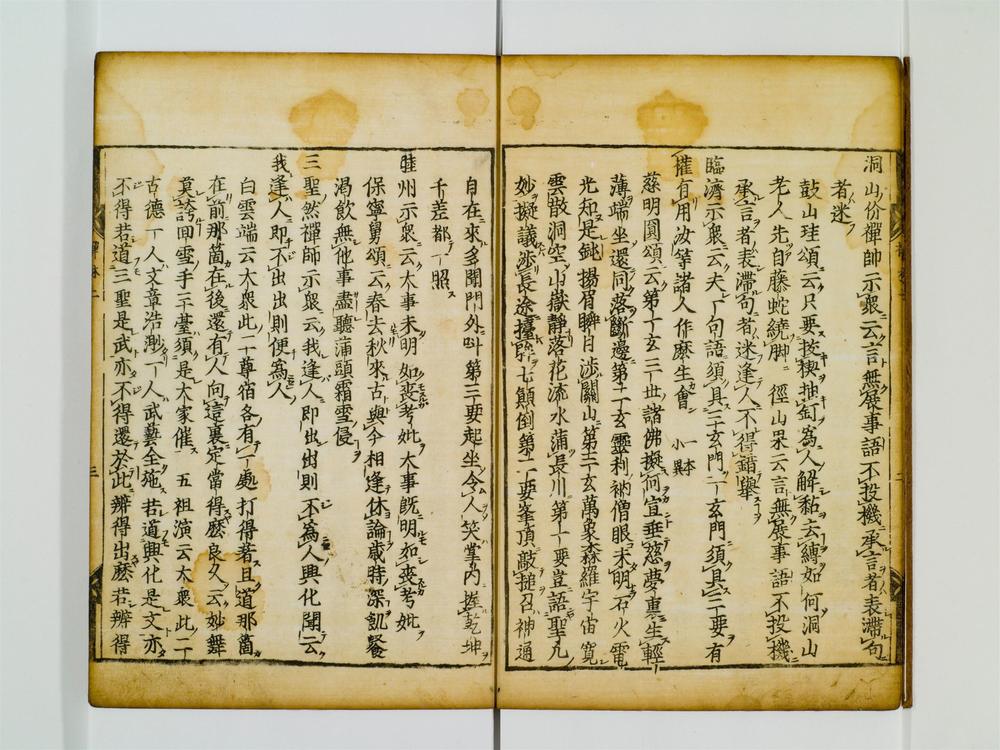 洞山价禪師示眾云言無展事語不投機承言者表滯句
者迷
鼓山珪頌云只要拔楔抽釘為人解黏去縛如何洞山
老人先自藤蛇繞脚　徑山杲云言無展事語不投機
承言者表滯句者迷逢人不得錯舉
臨濟示眾云夫一句語須具三玄門一玄門須具三要有
權有用汝等諸人作麼生會　一本小異
慈明圓頌云第一玄三世諸佛擬何宣垂慈夢裏生輕
薄端坐還同落斷邊第二玄靈利衲僧眼未明石火電
光知是鈍揚眉瞬目涉關山第三玄萬象森羅宇宙寬
雲散洞空山嶽靜落花流水蒲長川第一要豈語聖凡
妙擬議涉長途擡眸七顛倒第二要峯頂敲揵召神通
自在來多聞門外叫第三要起坐令人笑掌內握乾坤
千差都一照
睦州示眾云大事未明如喪考妣大事既明如喪考妣
保寧勇頌云春去秋來古與今相逢休論歲時深飢餐
渴飲無他事盡聽蒲頭霜雪侵
三聖然禪師示眾云我逢人即出出則不為人興化聞云
我逢人即不出出則便為人
白雲端云大眾此二尊宿各有一處打得著且道那箇
在前那箇在後還有人向這裏定當得麼良久云妙舞
莫誇回雪手三臺須是大家催　五祖演云大眾此二
古德一人文章浩渺一人武藝全施若道興化是文亦
不得若道三聖是武亦不得還於此辨得出麼若辨得